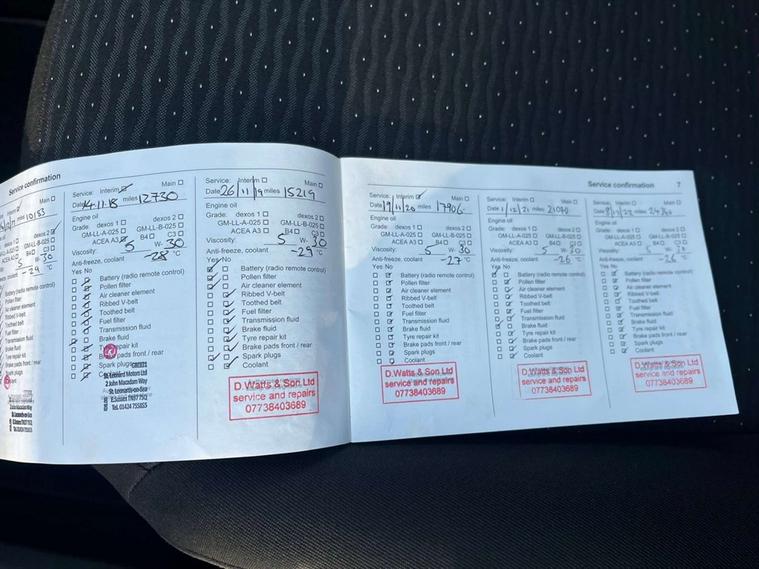 Service confirmation
10153
dexos 2
GM-LL-B-025
5 W- 30
-29 °C
Battery (radio remote control)
Pollen filter
Air cleaner element
Ribbed V-belt
Toothed belt
Fuel filter
Transmission fluid
Brake fluid
Tyre repair kit
Brake pads front / rear
Spark plugs
2 John Macadam Way
St. Leonards-on-Sea
E.Sussex TN37 7SQ
Tel. 01424 755855
Service: Interim Main
Date 14.11.18 miles 12730
Engine oil
Grade: dexos 1 dexos 2
GM-LL-A-025 GM-LL-B-025
ACEA A3 B4 C3
Viscosity: 5 W- 30
Anti-freeze, coolant -28 °C
Yes No
Battery (radio remote control)
Pollen filter
Air cleaner element
Ribbed V-belt
Toothed belt
Fuel filter
Transmission fluid
Brake fluid
Tyre repair kit
Brake pads front / rear
Spark plugs
St. Leonard Motors Ltd
2 John Macadam Way
St. Leonards-on-Sea
E.Sussex TN37 7SQ
Tel. 01424 755855
Service: Interim Main
Date 26/11/19 miles 15219
Engine oil
Grade: dexos 1 dexos 2
GM-LL-A-025 GM-LL-B-025
ACEA A3 B4 C3
Viscosity: 5 W- 30
Anti-freeze, coolant -29 °C
Yes No
Battery (radio remote control)
Pollen filter
Air cleaner element
Ribbed V-belt
Toothed belt
Fuel filter
Transmission fluid
Brake fluid
Tyre repair kit
Brake pads front / rear
Spark plugs
Coolant
D.Watts & Son Ltd
service and repairs
07738403689
Service confirmation 7
Service: Interim Main
Date 19/11/20 miles 17906
Engine oil
Grade: dexos 1 dexos 2
GM-LL-A-025 GM-LL-B-025
ACEA A3 B4 C3
Viscosity: 5 W- 30
Anti-freeze, coolant -27 °C
Yes No
Battery (radio remote control)
Pollen filter
Air cleaner element
Ribbed V-belt
Toothed belt
Fuel filter
Transmission fluid
Brake fluid
Tyre repair kit
Brake pads front / rear
Spark plugs
Coolant
D.Watts & Son Ltd
service and repairs
07738403689
Service: Interim Main
Date 1/12/21 miles
Engine oil
Grade: dexos 1 dexos 2
GM-LL-A-025 GM-LL-B-025
ACEA A3 B4 C3
Viscosity: 5 W-
Anti-freeze, coolant -26 °C
Yes No
Battery (radio remote control)
Pollen filter
Air cleaner element
Ribbed V-belt
Toothed belt
Fuel filter
Transmission fluid
Brake fluid
Tyre repair kit
Brake pads front / rear
Spark plugs
Coolant
D.Watts & Son Ltd
service and repairs
07738403689
Service: Interim Main
Date miles
Engine oil
Grade: dexos 1 dexos 2
GM-LL-A-025 GM-LL-B-025
ACEA A3 B4 C3
Viscosity: 5 W-
Anti-freeze, coolant -26 °C
Yes No
Battery (radio remote control)
Pollen filter
Air cleaner element
Ribbed V-belt
Toothed belt
Fuel filter
Transmission fluid
Brake fluid
Tyre repair kit
Brake pads front / rear
Spark plugs
Coolant
D.Watts & Son Ltd
service and repairs
07738403689